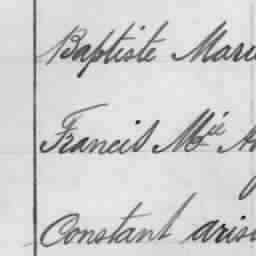 Baptiste Marie
Francis Mie
Constant aris